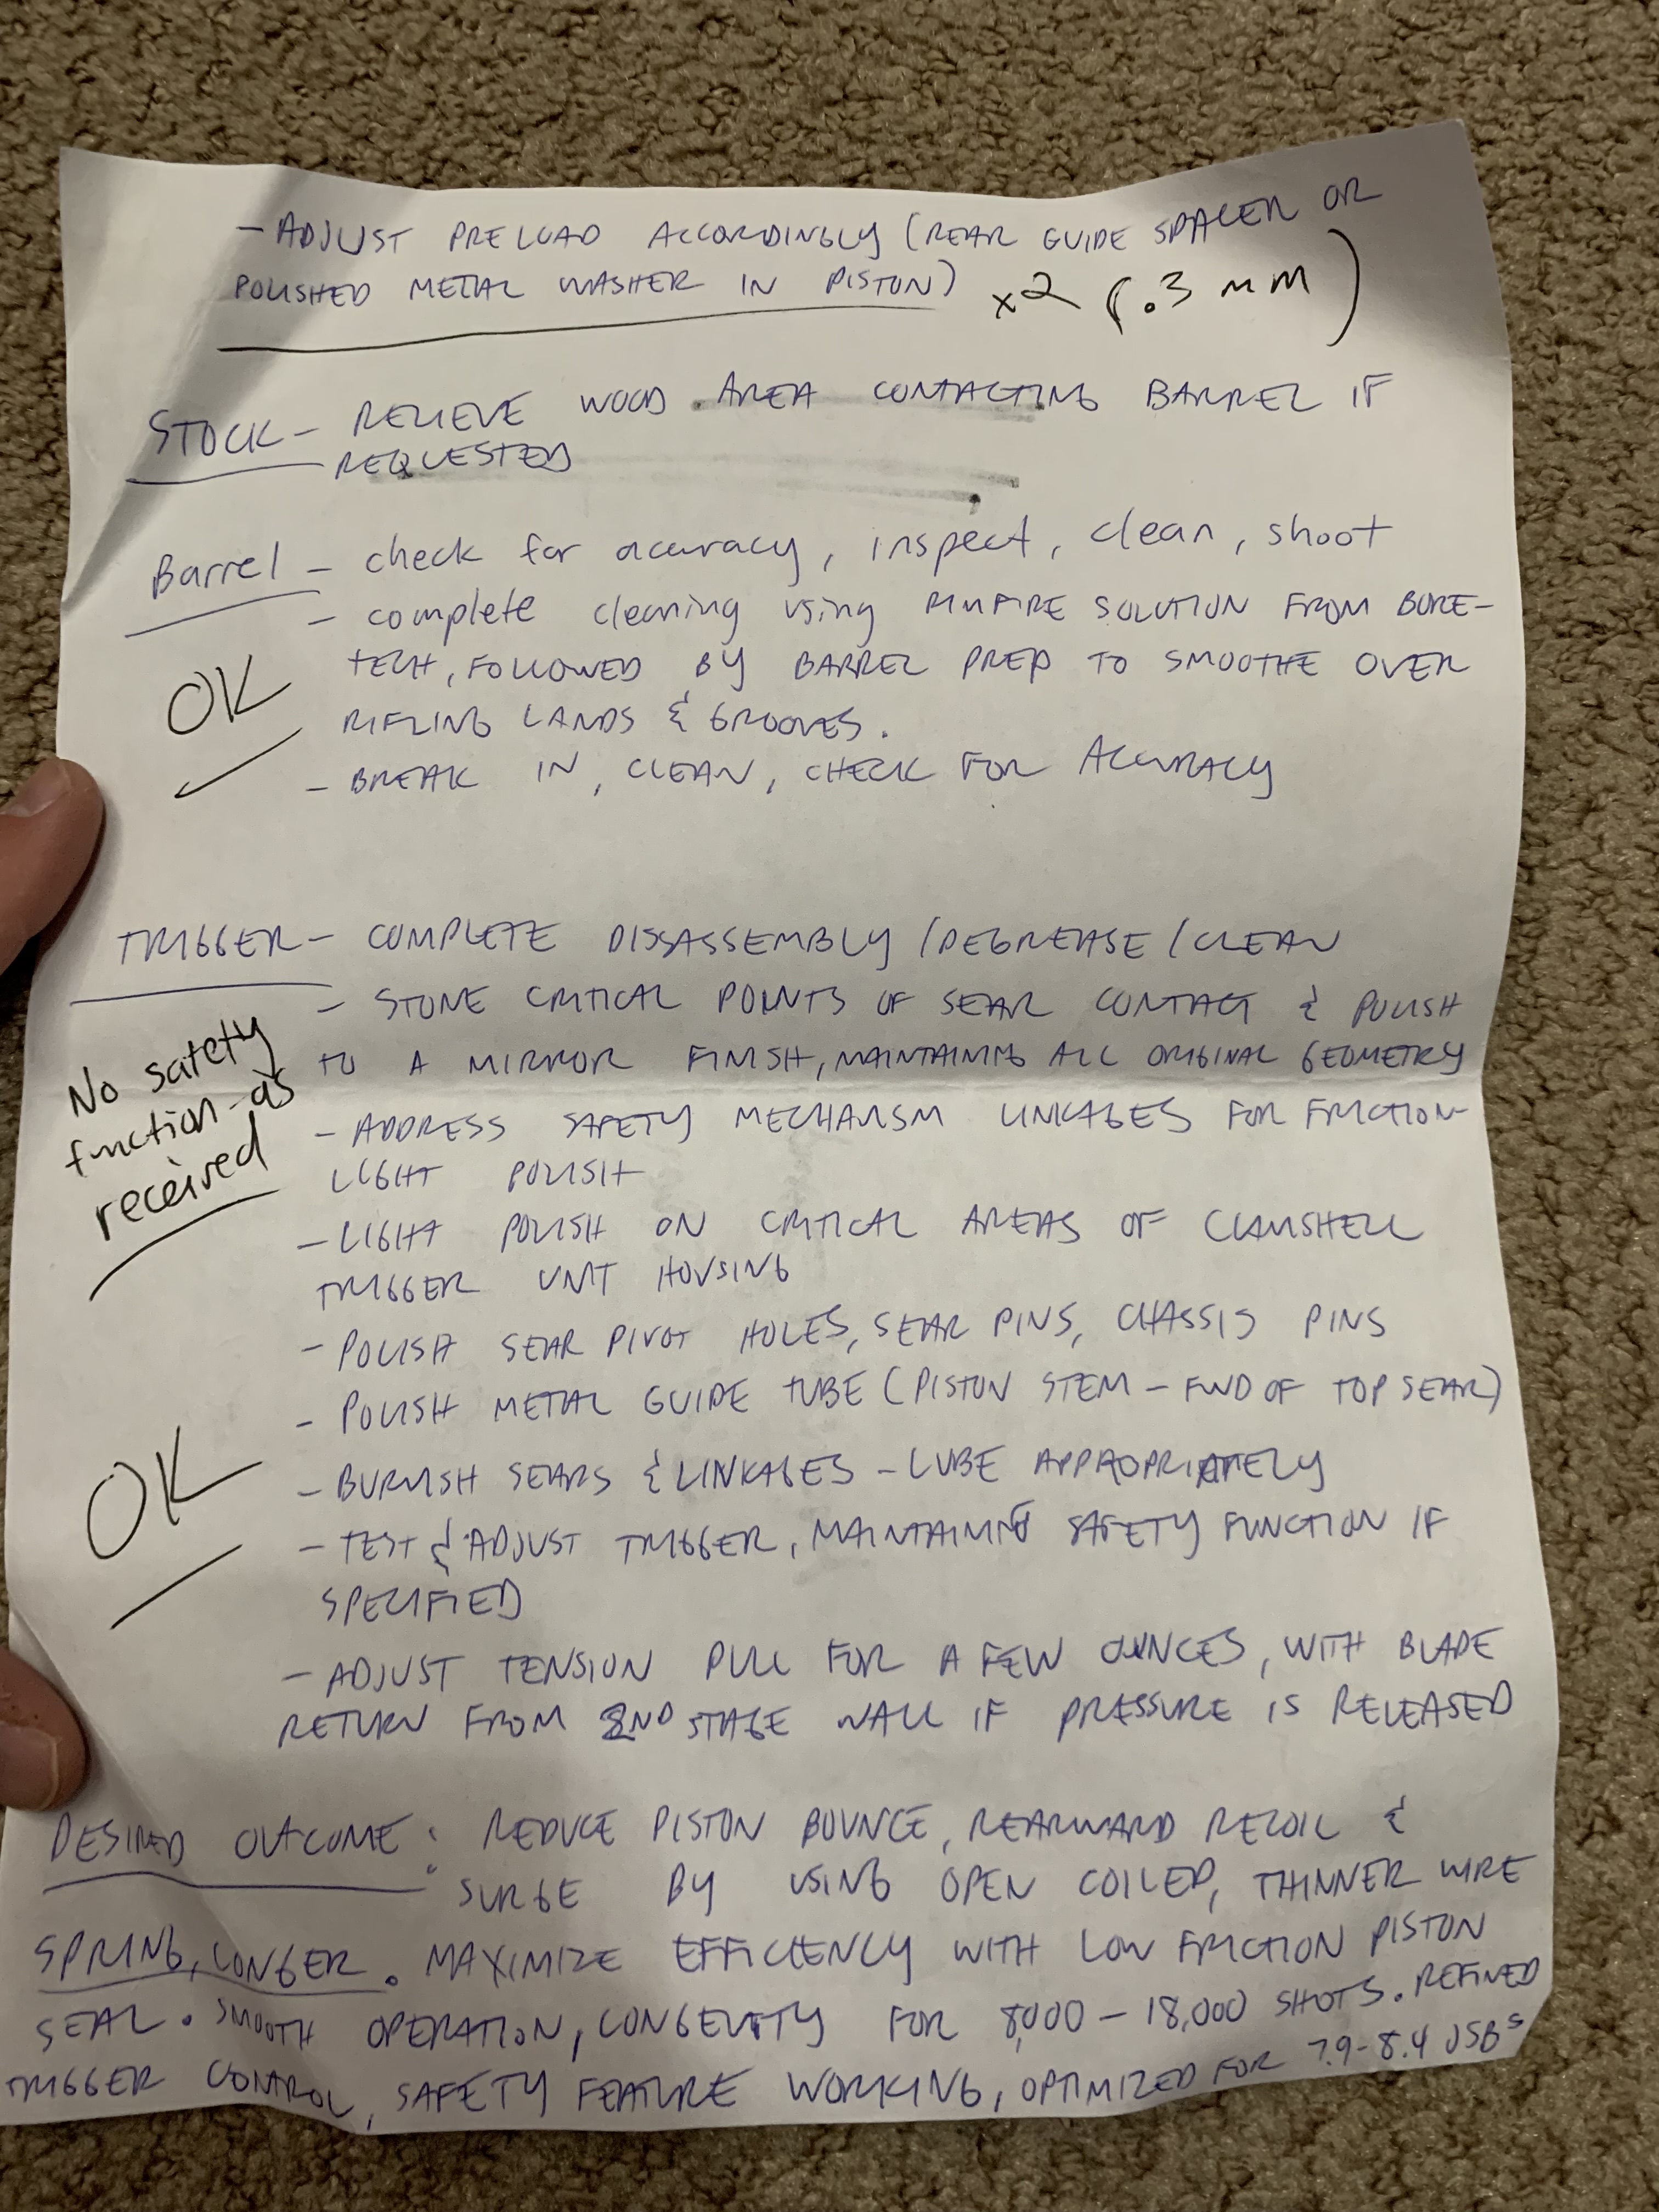 - ADJUST PRELOAD ACCORDINGLY (REAR GUIDE SPACER OR
POLISHED METAL WASHER IN PISTON) x2 (.3 mm)
STOCK - RELIEVE WOOD AREA CONTACTING BARREL IF
REQUESTED
Barrel - check for accuracy, inspect, clean, shoot
- complete cleaning using RIMFIRE SOLUTION FROM BORE-
TECH, FOLLOWED BY BARREL PREP TO SMOOTHE OVER
RIFLING LANDS & GROOVES.
OK
- BREAK IN, CLEAN, CHECK FOR ACCURACY
TRIGGER - COMPLETE DISSASSEMBLY / DEGREASE / CLEAN
- STONE CRITICAL POINTS OF SEAR CONTACT & POLISH
TO A MIRROR FINISH, MAINTAINING ALL ORIGINAL GEOMETRY
No safety
function - as
received
- ADDRESS SAFETY MECHANISM LINKAGES FOR FRICTION-
LIGHT POLISH
- LIGHT POLISH ON CRITICAL AREAS OF CLAMSHELL
TRIGGER UNIT HOUSING
- POLISH SEAR PIVOT HOLES, SEAR PINS, CHASSIS PINS
- POLISH METAL GUIDE TUBE (PISTON STEM - FWD OF TOP SEAR)
OK
- BURNISH SEARS & LINKAGES - LUBE APPROPRIATELY
- TEST & ADJUST TRIGGER, MAINTAINING SAFETY FUNCTION IF
SPECIFIED
- ADJUST TENSION PULL FOR A FEW OUNCES, WITH BLADE
RETURN FROM 2ND STAGE WALL IF PRESSURE IS RELEASED
DESIRED OUTCOME: REDUCE PISTON BOUNCE, REARWARD RECOIL &
SURGE BY USING OPEN COILED, THINNER WIRE
SPRING, LONGER. MAXIMIZE EFFICIENCY WITH LOW FRICTION PISTON
SEAL. SMOOTH OPERATION, LONGEVITY FOR 8,000 - 18,000 SHOTS. REFINED
TRIGGER CONTROL, SAFETY FEATURE WORKING, OPTIMIZED FOR 7.9-8.4 JSBs